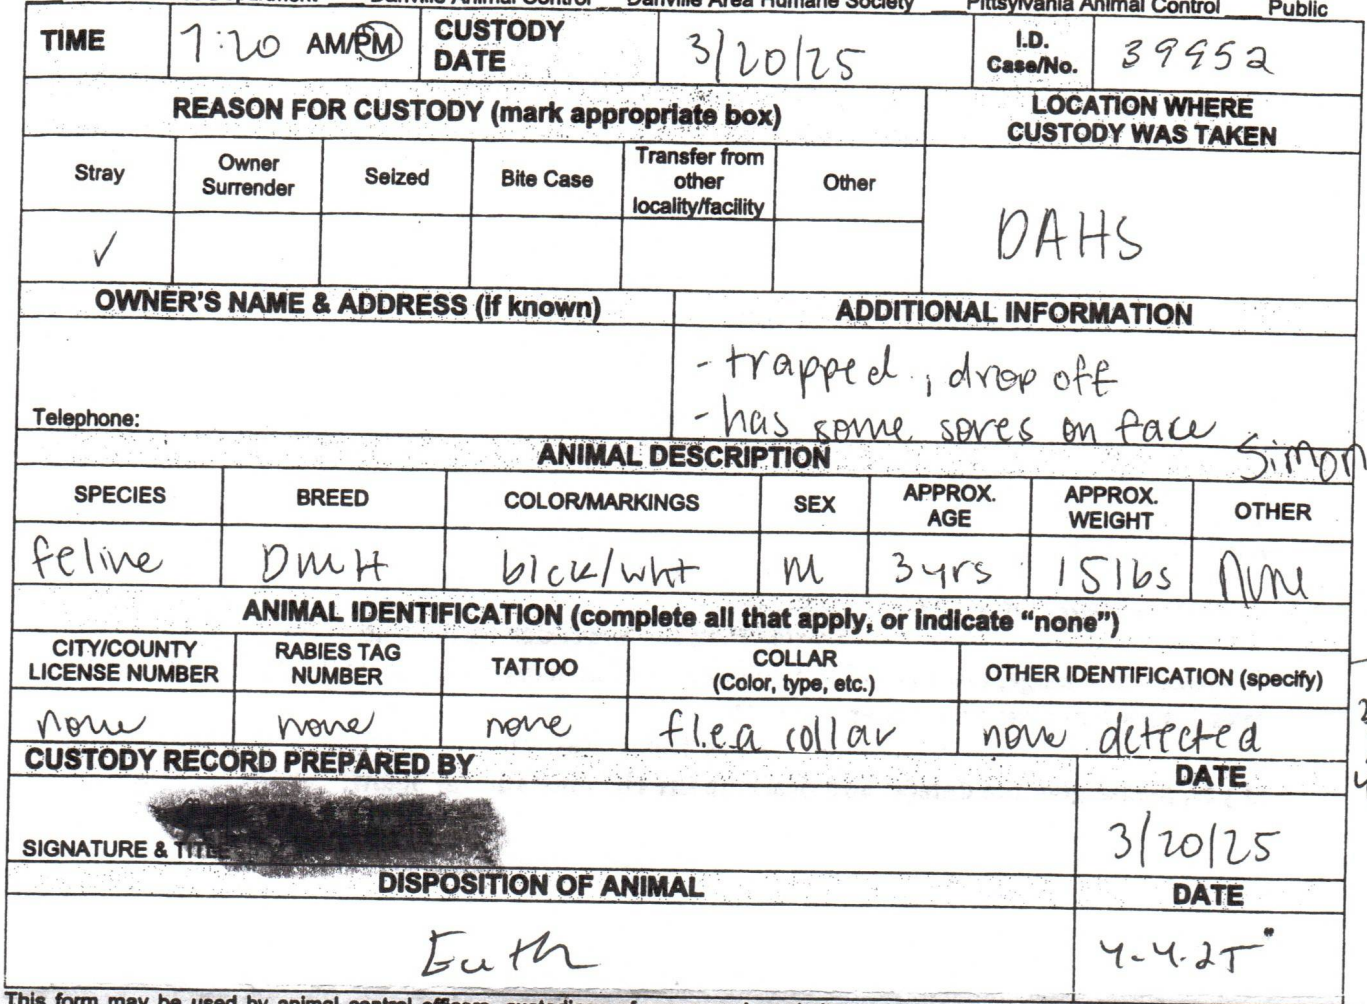 Danville Animal Control Danville Area Humane Society Pittsylvania Animal Control Public
TIME 7:20 AM/PM CUSTODY DATE 3/20/25 I.D. Case/No. 39952
REASON FOR CUSTODY (mark appropriate box)
LOCATION WHERE
CUSTODY WAS TAKEN
Stray
Owner
Surrender
Seized
Bite Case
Transfer from
other
locality/facility
Other
✓
DAHS
OWNER'S NAME & ADDRESS (if known)
Telephone:
ADDITIONAL INFORMATION
- trapped, drop off
- has some sores on face
Simon
ANIMAL DESCRIPTION
SPECIES BREED COLOR/MARKINGS SEX APPROX. AGE APPROX. WEIGHT OTHER
feline DMH blck/wht M 3yrs 15lbs None
ANIMAL IDENTIFICATION (complete all that apply, or indicate "none")
CITY/COUNTY
LICENSE NUMBER
RABIES TAG
NUMBER
TATTOO
COLLAR
(Color, type, etc.)
OTHER IDENTIFICATION (specify)
none none none flea collar none detected
CUSTODY RECORD PREPARED BY
DATE
SIGNATURE & TITLE
3/20/25
DISPOSITION OF ANIMAL
DATE
Euth
4-4-25
This form may be used by animal control officers, custodians